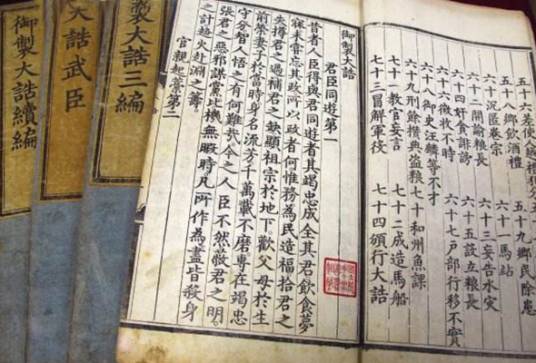 五十六差使人
五十八鄉飲酒禮 五十九鄉民除患
六十沉匿卷宗 六十一馬站
六十二開諭糧長 六十三妄告水災
六十四奸貪誹謗 六十五設立糧長
六十六徵收不時 六十七戶部行移不實
六十八御史汪麟等不才
六十九刑餘攢典盜糧 七十和州魚課
七十一教官妄言 七十二成造馬船
七十三冒解軍役 七十四頒行大誥
御製大誥
君臣同遊第一
昔者人臣得與君同遊者其竭忠成全其君飲食夢
寐未嘗忘其政所以政者何惟務為民造福拾君之
失撙君之過補君之缺顯祖宗於地下歡父母於生
前榮妻子於當時身名流芳千萬載不磨專在竭忠
守分智人悟之有何難哉今之人臣不然蔽君之明
張君之惡邪謀黨比機無暇時凡所作為盡皆殺身
之計趨火赴淵之籌
官親起藁第二
製大誥三編
大誥武臣
御製大誥續編